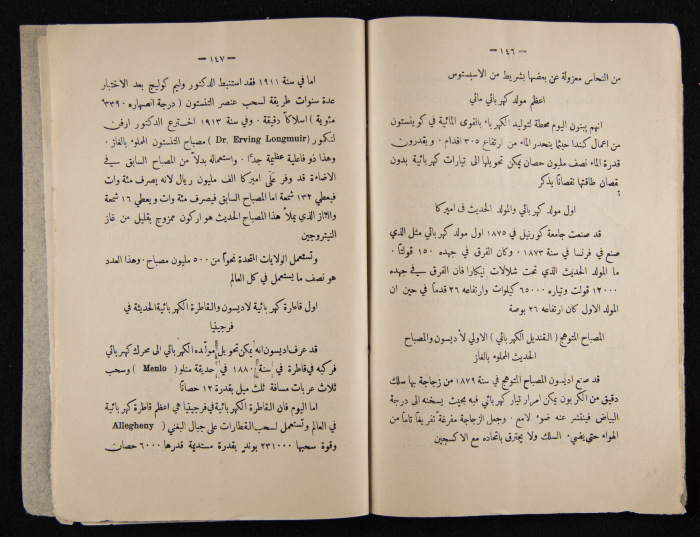 — ١٤٦ —
من النحاس معزولة عن بعضها بشريط من الاسبستوس
اعظم مولد كهربائي مائي
انهم يبنون اليوم محطة لتوليد الكهرباء بالقوى المائية في كوينستون
من اعمال كندا حيثما ينحدر الماء من ارتفاع ٣٠٥ اقدام . ويقدرون
قدرة الماء نصف مليون حصان يمكن تحويلها الى تيارات كهربائية بدون
نقصان طاقتها نقصانًا يذكر
اول مولد كهربائي والمولد الحديث في اميركا
قد صنعت جامعة كورنيل في ١٨٧٥ اول مولد كهربائي مثل الذي
صنع في فرنسا في سنة ١٨٧٣ . وكان الفرق في جهده ١٥٠ فولتًا .
ما المولد الحديث الذي تحت شلالات نيكارا فان الفرق في جهده
١٢٠٠٠ فولت وتياره ٦٥٠٠٠ كيلوات وارتفاعه ٢٦ قدمًا في حين ان
المولد الاول كان ارتفاعه ٢٦ بوصة
المصباح المتوهج ( القنديل الكهربائي ) الاولي لأديسون والمصباح
الحديث المملوء بالغاز
قد صنع اديسون المصباح المتوهج في سنة ١٨٧٩ من زجاجة بها سلك
دقيق من الكربون يمكن امرار تيار كهربائي فيه بحيث يسخنه الى درجة
البياض فينتشر عنه ضوء لامع . وجعل الزجاجة مفرغة تفريغًا تامًا من
الهواء حتى يضيء السلك ولا يحترق باتحاده مع الاكسجين
— ١٤٧ —
اما في سنة ١٩١١ فقد استنبط الدكتور وليم كوليج بعد الاختبار
عدة سنوات طريقة لسحب عنصر التنغستون ( درجة انصهاره ٣٣٩٠
مئوية ) اسلاكًا دقيقة . وفي سنة ١٩١٣ اخترع الدكتور ارفن
لنكمور ( Dr. Erving Longmuir ) مصباح التنغستون المملوء بالغاز .
وهذا ذو فاعلية عظيمة جدًا . واستعماله بدلاً من المصباح السابق في
الاضاءة قد وفر على اميركا الف مليون ريال لانه يصرف مئة وات
فيعطي ١٣٢ شمعة اما المصباح السابق فيصرف مئة وات ويعطي ١٦ شمعة
والغاز الذي يملأ هذا المصباح الحديث هو اركون ممزوج بقليل من غاز
النيتروجين
وتستعمل الولايات المتحدة نحوًا من ٥٠٠ مليون مصباح . وهذا العدد
هو نصف ما يستعمل في كل العالم
اول قاطرة كهربائية لاديسون والقاطرة الكهربائية الحديثة في
فرجينيا
قد عرف اديسون انه يمكن تحويل مولده الكهربائي الى محرك كهربائي
فركبه في قاطرة في سنة ١٨٨٠ في حديقة منلو ( Menlo ) وسحب
ثلاث عربات مسافة ثلث ميل بقدرة ١٢ حصانًا
اما اليوم فان القاطرة الكهربائية في فرجينيا هي اعظم قاطرة كهربائية
في العالم وتستعمل لسحب القطارات على جبال اليغني ( Allegheny
وقوة سحبها ٢٣١٠٠٠ بوند بقدرة مستديمة قدرها ٦٠٠٠ حصان